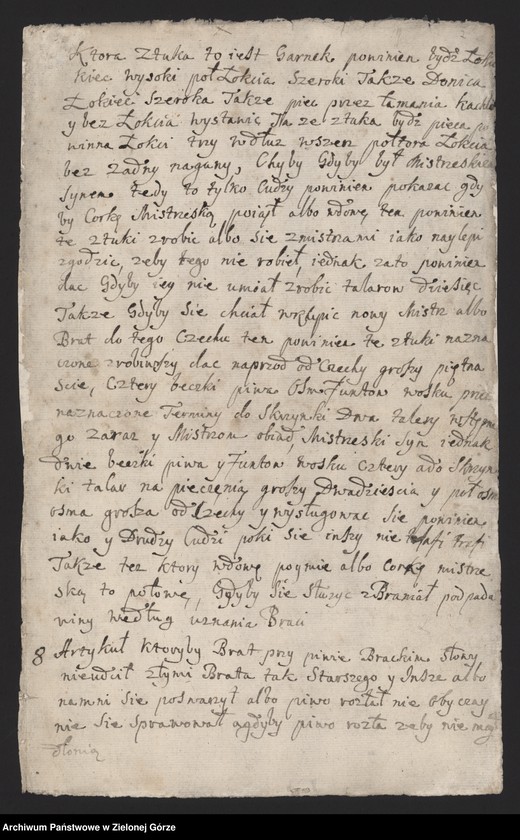 Ktora Ztuka to iest Garnek powinien bydz Łok
kiec wysoki poł Łokcia Szeroki Takze Donica
Łokiec Szeroka Takze piec przez łamania kachlu
y bez Łokcia wystawic Ta ze ztuka bydz pieca po
winna Łokci trzy wdłuz wszerz połtora Łokcia
bez zadny nagany, Chyby Gdyby był Mistrzeskiem
Synem tedy to tylko Cudzy powinien pokazac gdy
by Corkę Mistrzeską poiął albo wdowę ten powinien
te ztuki zrobic albo Sie zmistrzami iako naylepi
zgodzic, zeby tego nie robieł, iednak zato powinien
dac Gdyby iey nie umiał zrobic talarow dziesięc
Takze Gdyby Sie chciał wstępic nowy Mistr albo
Brat do tego Czechu ten powinien te ztuki nazna
czone zrobiwszy dac naprzod od Czechy groszy piętna
scie, Cztery beczki piwa Osm Funtow wosku przez
naznaczone Terminy do Skrzynki Dwa talery wstępne
go zaraz y Mistrzom obiad, Mistrzeski Syn iednak
dwie beczki piwa y Funtow wosku cztery ado Skrzyn
ki talar na pieczenią groszy Dwadziescia y puł osm
osma grosza od Czechy y wysługowac Sie powinien
iako y Drudzy Cudzi poki Sie inszy nie trafi
Takze tez ktory wdowę poymie albo Corkę mistrze
ską to połowę, Gdyby Sie Słuzyc zBraniał podpada
winy według uznania Braci
8 Artykuł ktoryby Brat przy piwie Brackim Słowy
nieucił złymi Brata tak Starszego y Insze albo
namni Sie poswarzył albo piwo rozlał nie Obyczay
nie Sie Sprawował agdyby piwo rozla zeby nie mog
dłonią
Archiwum Państwowe w Zielonej Górze